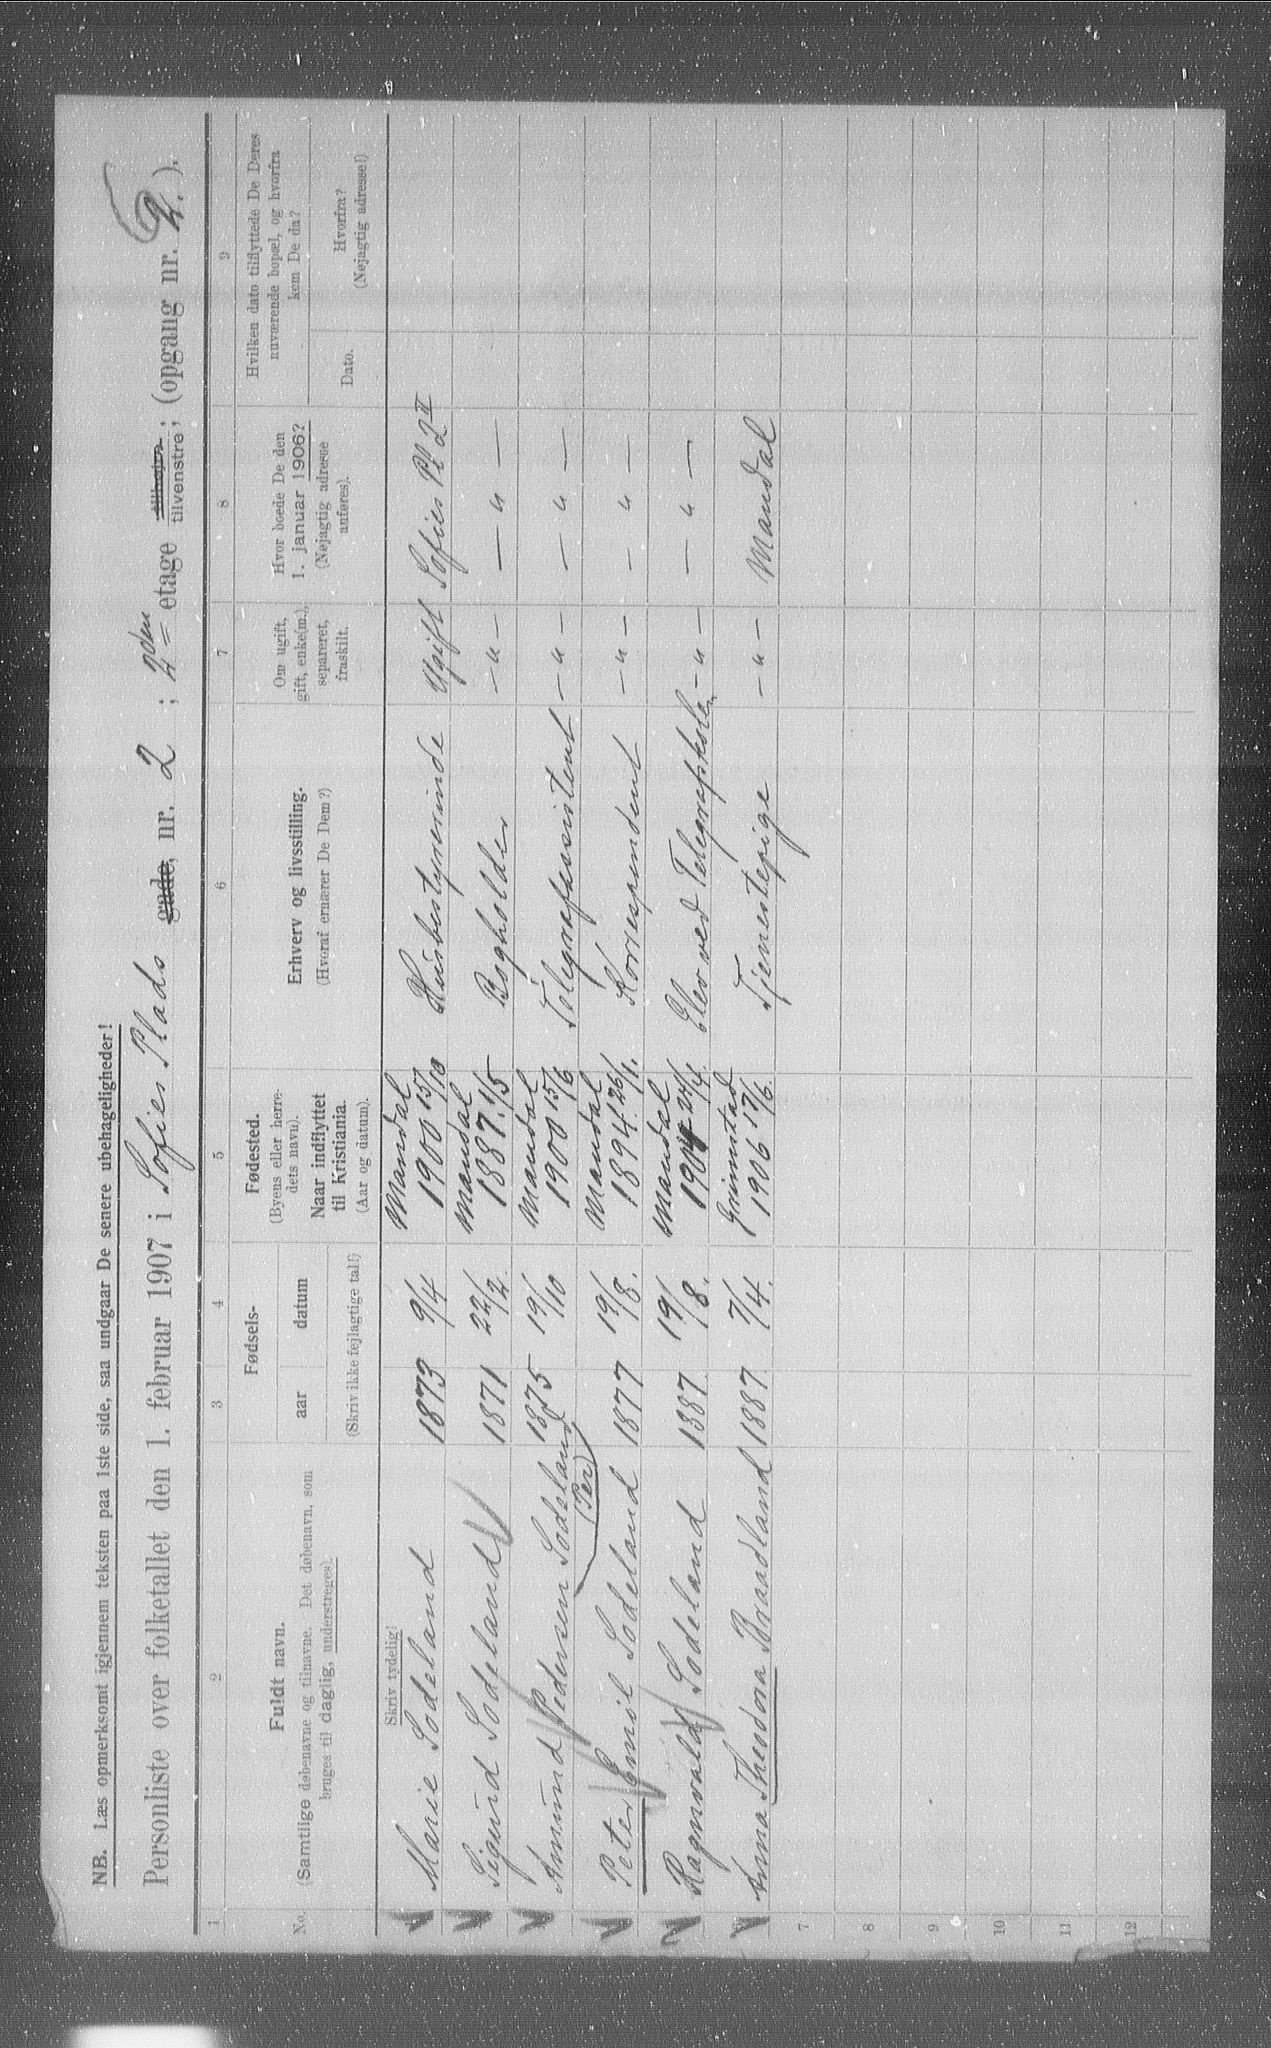 NB. Læs opmerksomt igjennem teksten paa 1ste side, saa undgaar De senere ubehageligheder!
Personliste over folketallet den 1. februar 1907 i Sofies Plads gade, nr. 2 ; 2den etage tilhøjre tilvenstre; (opgang nr. 2.).
1 2 3 4 5 6 7 8 9
No.
Fuldt navn.
(Samtlige døbenavne og tilnavne. Det døbenavn, som
bruges til daglig, understreges).
Skriv tydelig!
Fødsels-
aar datum
(Skriv ikke fejlagtige tal!)
Fødested.
(Byens eller herre-
dets navn).
Naar indflyttet
til Kristiania.
(Aar og datum).
Erhverv og livsstilling.
(Hvoraf ernærer De Dem?)
Om ugift,
gift, enke(m.),
separeret,
fraskilt.
Hvor boede De den
1. januar 1906?
(Nøjagtig adresse
anføres).
Hvilken dato tilflyttede De Deres
nuværende bopæl, og hvorfra
kom De da?
Dato.
Hvorfra?
(Nøjagtig adresse!)
Marie Sodeland 1873 9/4 Mandal 1900 15/10 Husbestyrerinde Ugift Sofies Pl 2 II
Sigurd Sodeland 1871 22/2. Mandal 1887. 1/5 Bogholder — " — — " —
Amund Pedersen Sodeland 1875 19/10 Mandal 1900 15/6 Telegrafassistent — " — — " —
(Per)
Peter Emil Sodeland 1877 19/8. Mandal 1894. 26/1. Korrespondent — " — — " —
Ragnvald Sodeland 1887 19/8. Mandal 24/4. Elev ved Telegrafskolen — " — — " —
Anna Theodora Braadland 1887 7/4. Grimstad 1906 17/6. Tjenestepige — " — Mandal
7
8
9
10
11
12